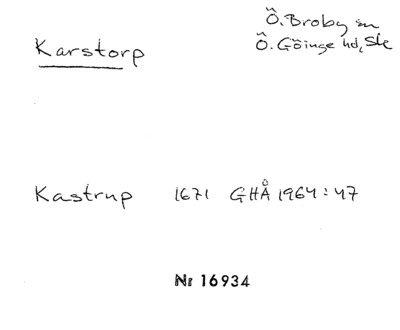 Karstorp
Ö. Broby sn
Ö. Göinge hd, Sk
Kastrup 1671 GHÅ 1964:47
Nr 16934